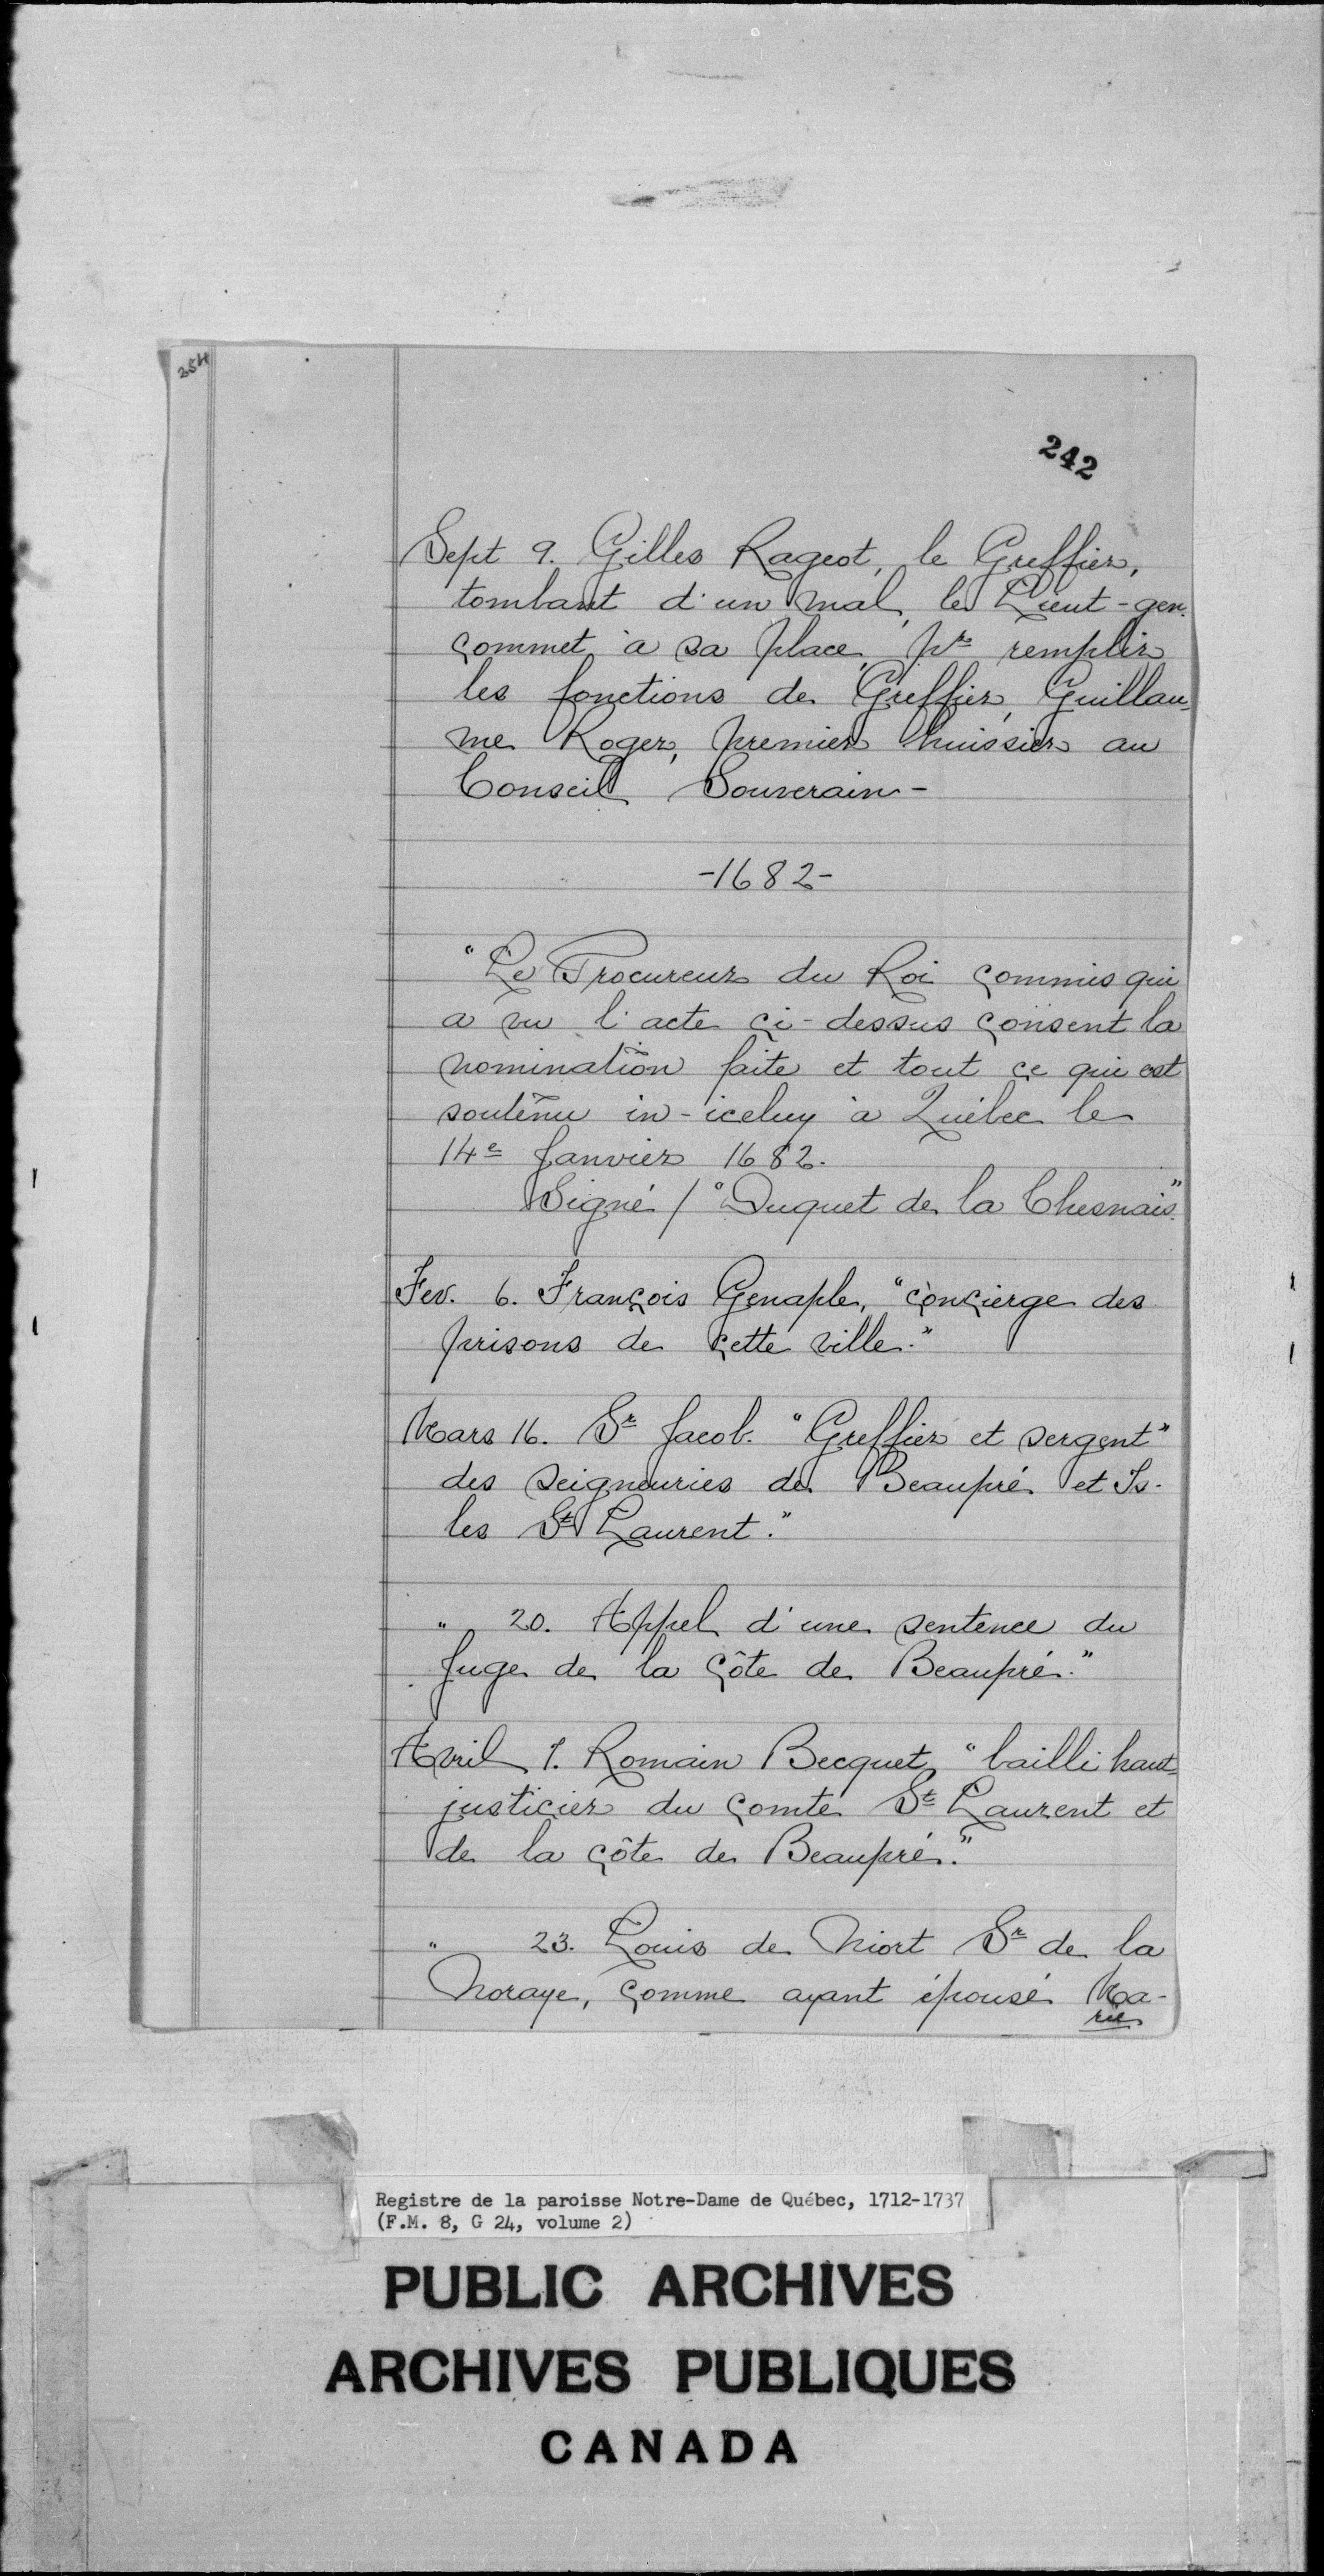 254
242
Sept 9. Gilles Rageot, le Greffier,
tombant d'un mal, le Lieut-gen.
commet à sa place, pr remplir
les fonctions de Greffier, Guillau-
me Roger, premier huissier au
Conseil Souverain-
-1682-
"Le Procureur du Roi commis qui
a vu l'acte ci-dessus consent la
nomination faite et tout ce qui est
soutenu in-iceluy à Québec le
14e Janvier 1682.
Signé / "Duquet de la Chesnais".
Fev. 6. François Genaple, "concierge des
prisons de cette ville."
Mars 16. Sr Jacob. "Greffier et sergent"
des seigneuries de Beaupré et Is-
les St Laurent."
" 20. Appel d'une sentence du
Juge de la côte de Beaupré."
Avril 1. Romain Becquet, "bailli haut-
justicier du comté St Laurent et
de la côte de Beaupré."
" 23. Louis de Niort Sr de la
Noraye, comme ayant épousé Ma-
rie
Registre de la paroisse Notre-Dame de Québec, 1712-1737
(F.M. 8, G 24, volume 2)
PUBLIC ARCHIVES
ARCHIVES PUBLIQUES
CANADA